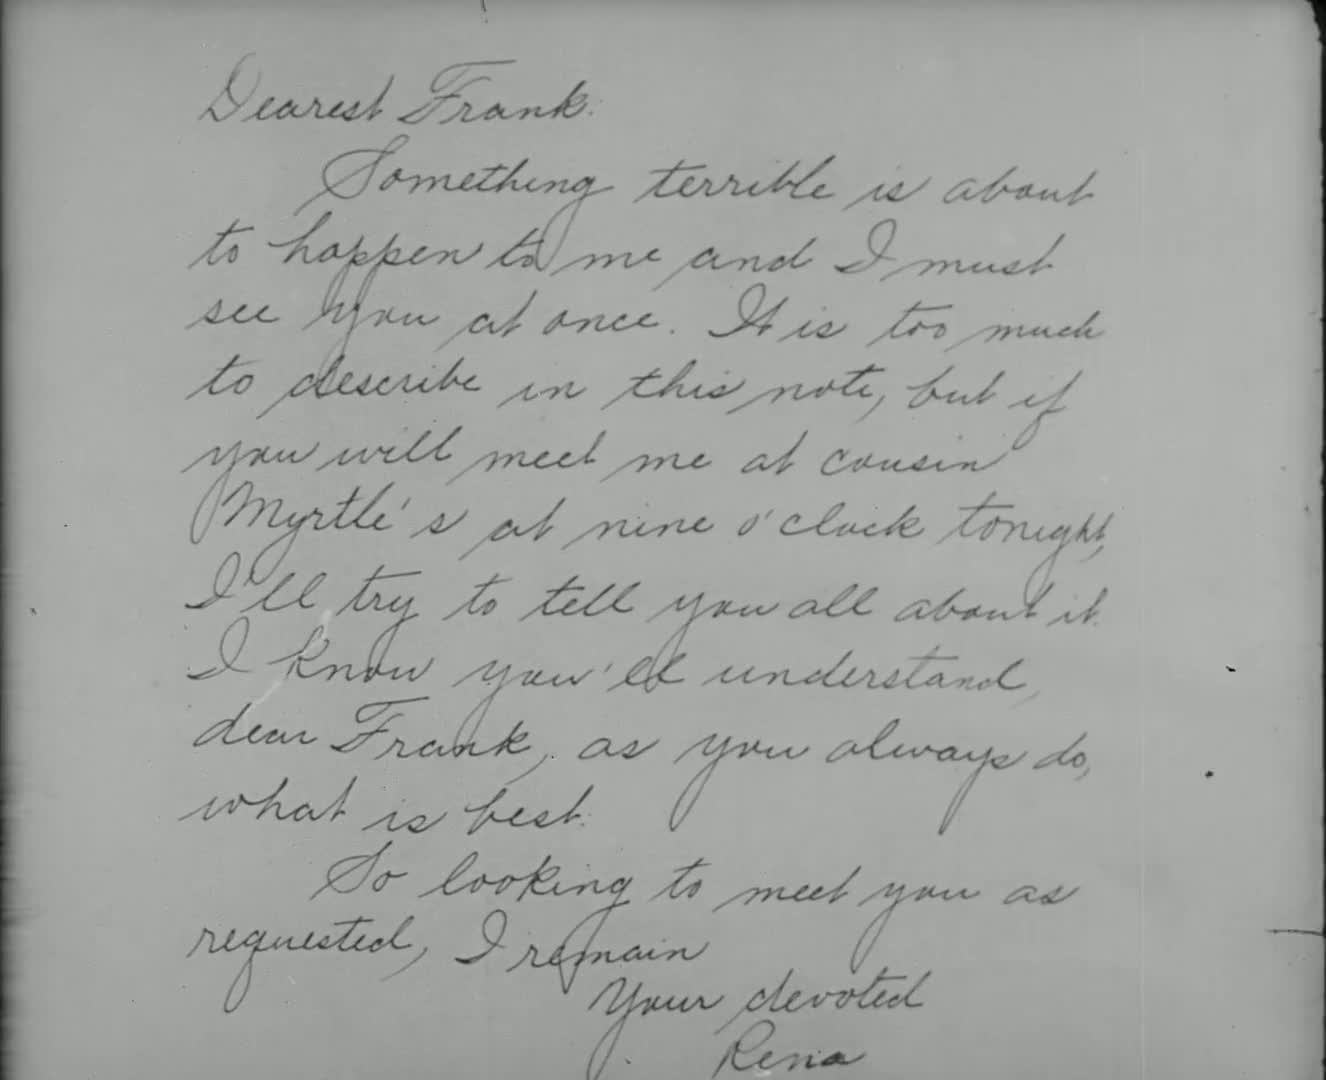 Dearest Frank:
Something terrible is about
to happen to me and I must
see you at once. It is too much
to describe in this note, but if
you will meet me at cousin
Myrtle's at nine o'clock tonight,
I'll try to tell you all about it.
I know you'll understand,
dear Frank, as you always do,
what is best.
So looking to meet you as
requested, I remain
Your devoted
Rena